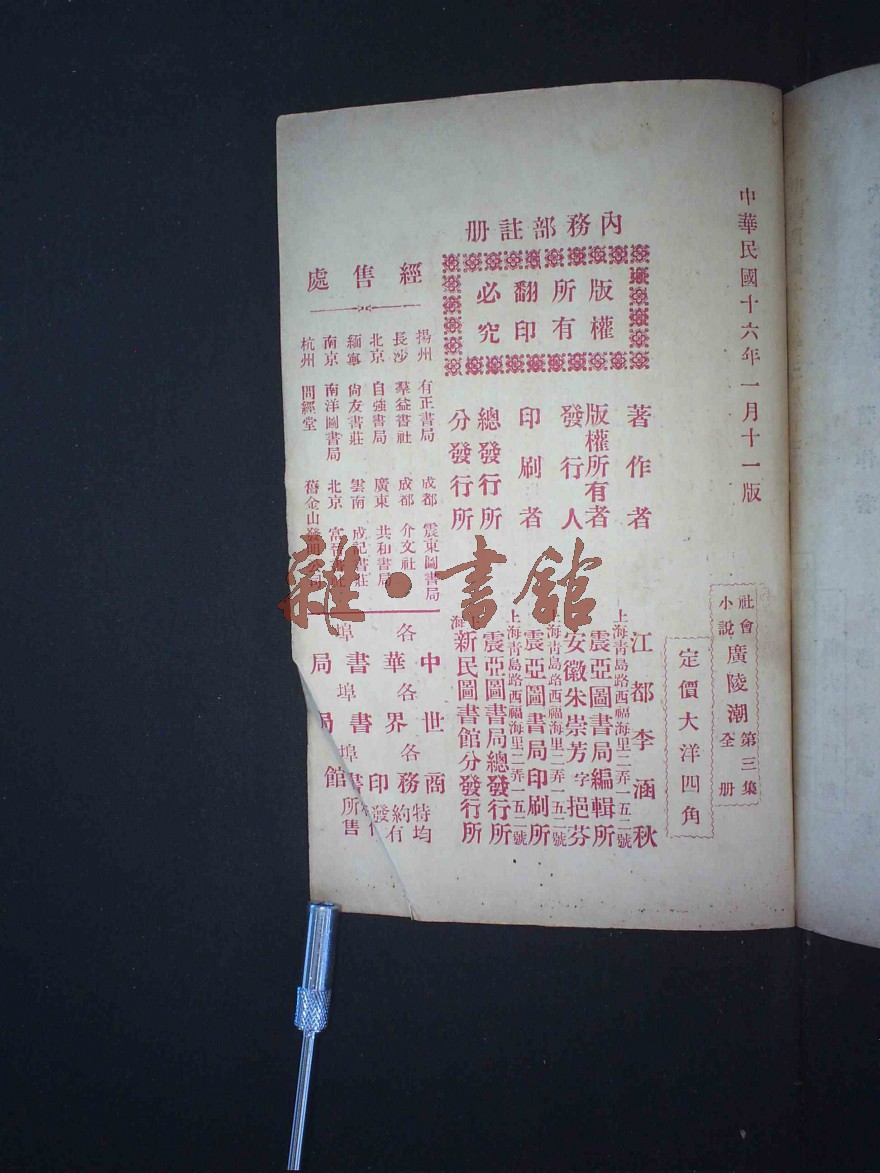 中華民國十六年一月十一版
社會小說 廣陵潮 第三集 全册
定價大洋四角
內務部註册
版權所有
翻印必究
著作者 江都李涵秋
版權所有者 上海靑島路西福海里二弄一五二號 震亞圖書局編輯所
發行人 安徽朱崇芳字挹芬
印刷者 上海靑島路西福海里二弄一五二號 震亞圖書局印刷所
總發行所 上海靑島路西福海里二弄一五二號 震亞圖書局總發行所
分發行所 上海 新民圖書館分發行所
經售處
揚州 有正書局 成都 震東圖書局
長沙 羣益書社 成都 介文社
北京 自強書局 廣東 共和書局
緬寧 尙友書莊 雲南 成記書莊
南京 南洋圖書局 北京 富晉書社
杭州 問經堂 舊金山發明公司
中華書局 各埠
世界書局 各埠
商務印書館 各埠
特約發行所均有售
雜·書館